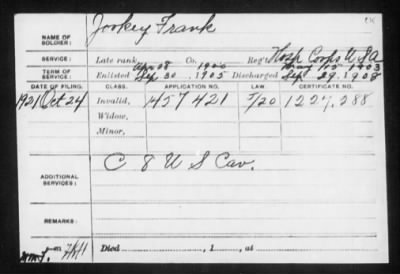 NAME OF SOLDIER: Jookey Frank
SERVICE: Late rank, Co. Reg't Hosp Corps U S A
TERM OF SERVICE: Enlisted Sep 30, 1905 Discharged Sep 29, 1908
DATE OF FILING. CLASS. APPLICATION NO. LAW CERTIFICATE NO.
1921 Oct 24 Invalid, 1457421 5/20 1227,288
Widow,
Minor,
ADDITIONAL SERVICES: C 8 U S Cav.
REMARKS:
Died , 1 , at